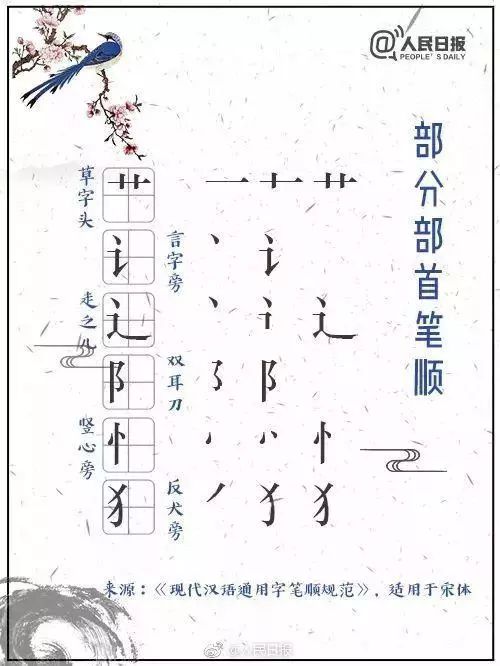 @人民日报
PEOPLE'S DAILY
部分部首笔顺
草字头 艹 一 十 艹
言字旁 讠 丶 讠
走之儿 辶 丶 讠 辶
双耳刀 阝 ㇌ 阝
竖心旁 忄 丶 丷 忄
反犬旁 犭 丿 犭 犭
来源：《现代汉语通用字笔顺规范》，适用于宋体
@人民日报